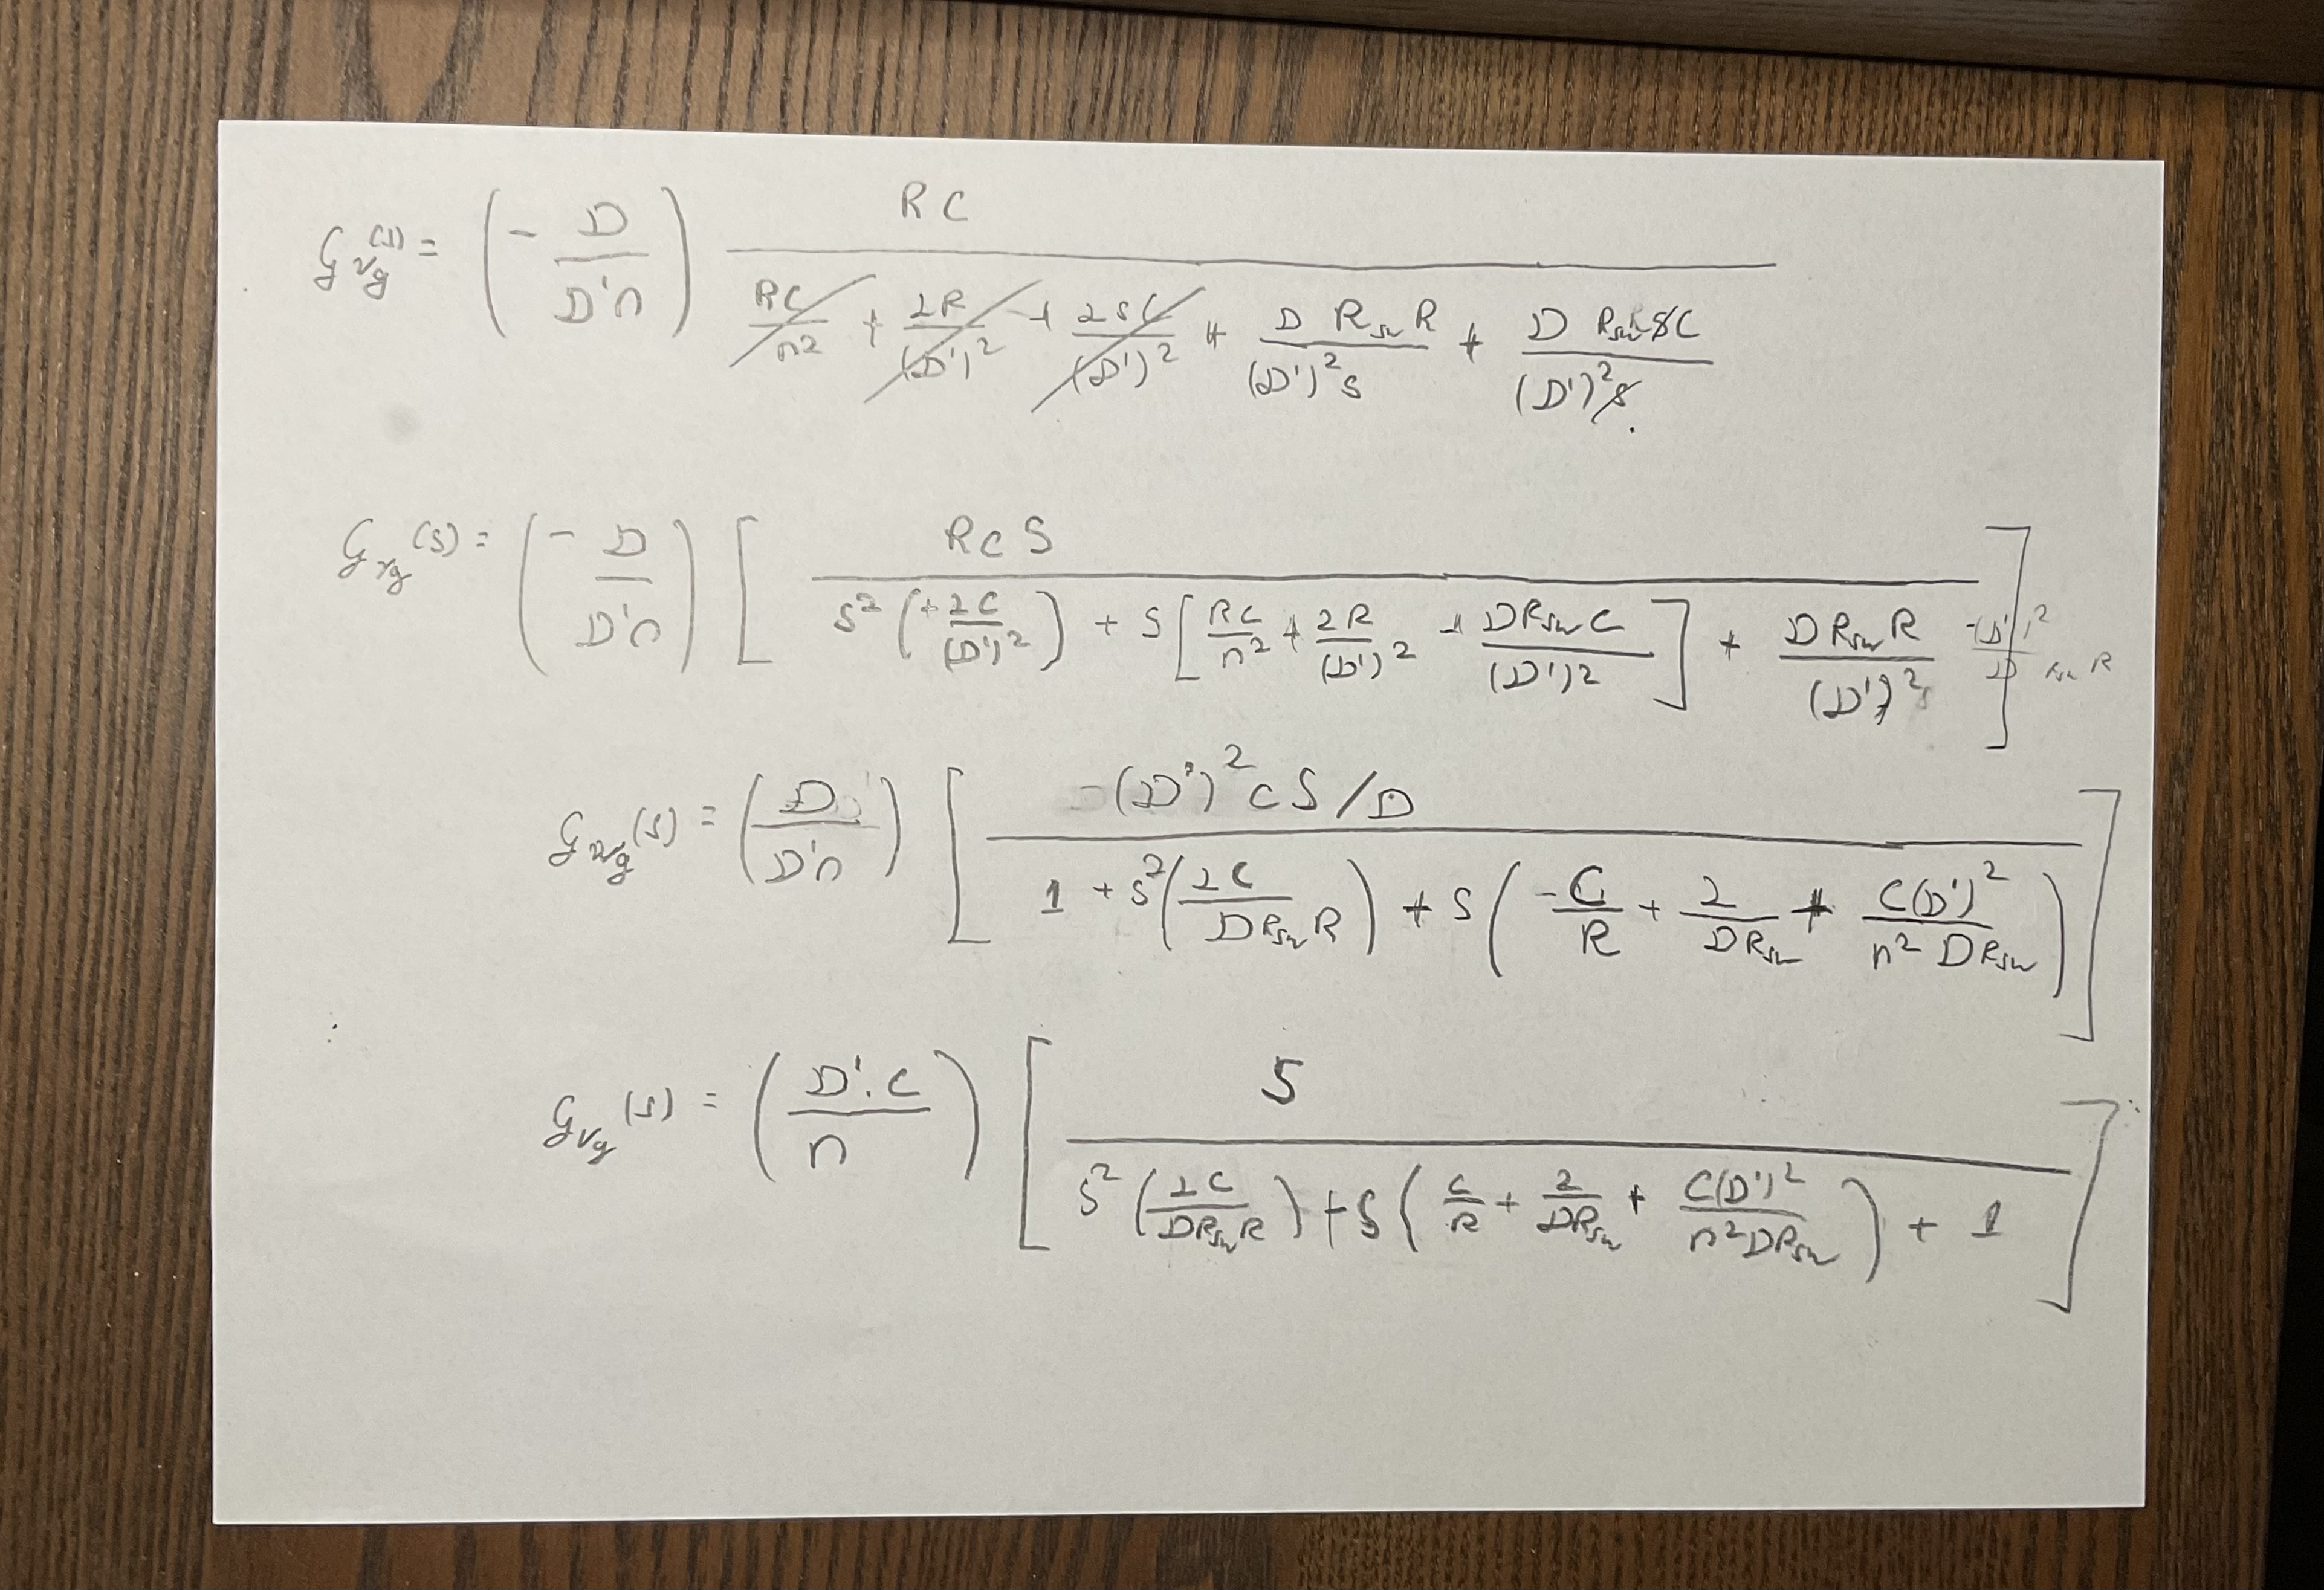 G_vg(s) = (- D / D'n) RC / (RC/n² + 2R/(D')² + 2sC/(D')² + D R_sw R / (D')² s + D R_sw R s C / (D')² s)
G_vg(s) = (- D / D'n) [ R C S / (s² (+ 2C/(D')²) + s [ RC/n² + 2R/(D')² + D R_sw C / (D')² ] + D R_sw R / (D')²) ] -(D')² / D R_sw R
G_vg(s) = (D / D'n) [ -(D')² C S / D / (1 + s² (2C / D R_sw R) + s (- C/R + 2 / D R_sw + C(D')² / n² D R_sw)) ]
G_vg(s) = (D'.C / n) [ S / (s² (2C / D R_sw R) + s (C/R + 2 / D R_sw + C(D')² / n² D R_sw) + 1) ]